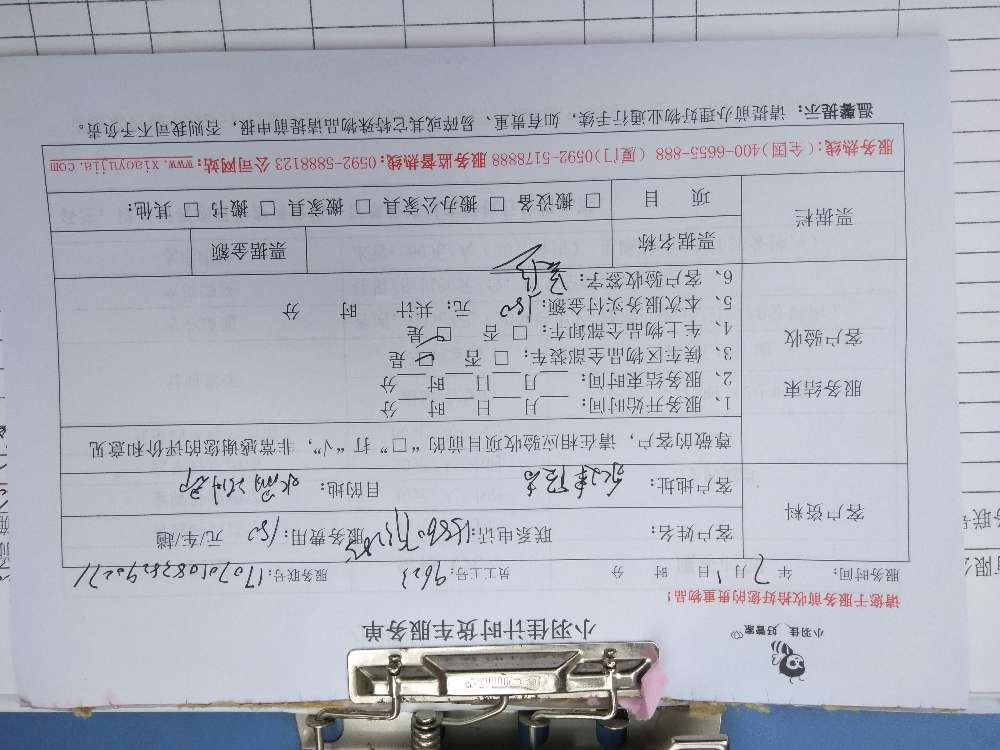 小羽佳 好管家
小羽佳计时货车服务单
请您于服务前收拾好您的贵重物品!
服务时间: 年 7月1日 时 分 员工工号: 9623 服务联号:
客户资料
客户姓名: 联系电话: 服务费用: 150 元/车/趟
客户地址: 目的地:
尊敬的客户,请在相应验收项目前的“□”打“√”,非常感谢您的评价和意见
服务结束
客户验收
1、服务开始时间:___月___日___时___分
2、服务结束时间:___月___日___时___分
3、候车区物品全部装车: □ 否 □ 是
4、车上物品全部卸车: □ 否 □ 是
5、本次服务实付金额: 150 元; 共计 时 分
6、客户验收签字:
票据栏
票据名称 票据金额
项 目 □ 搬设备 □ 搬办公家具 □ 搬家具 □ 搬书 □ 其他:
服务热线:(全国)400-6655-888 (厦门)0592-5178888 服务监督热线:0592-5888123 公司网站:www.xiaoyujia.com
温馨提示: 请提前办理好物业通行手续,如有贵重、易碎或其它特殊物品请提前申报,否则我司不予负责。